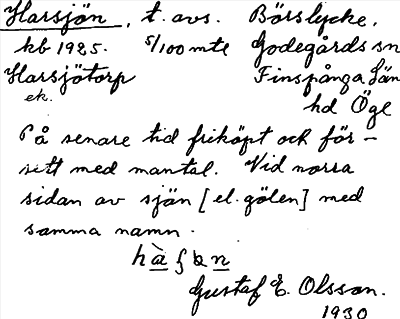 Harsjön, t. avs. Börslycke,
hb 1925. 5/100 mtl Godegårds sn
Harsjötorp Finspånga Län
ek. hd Ögl
På senare tid friköpt och för-
sett med mantal. Vid norra
sidan av sjön [el. gölen] med
samma namn.
Gustaf E. Olsson.
1930